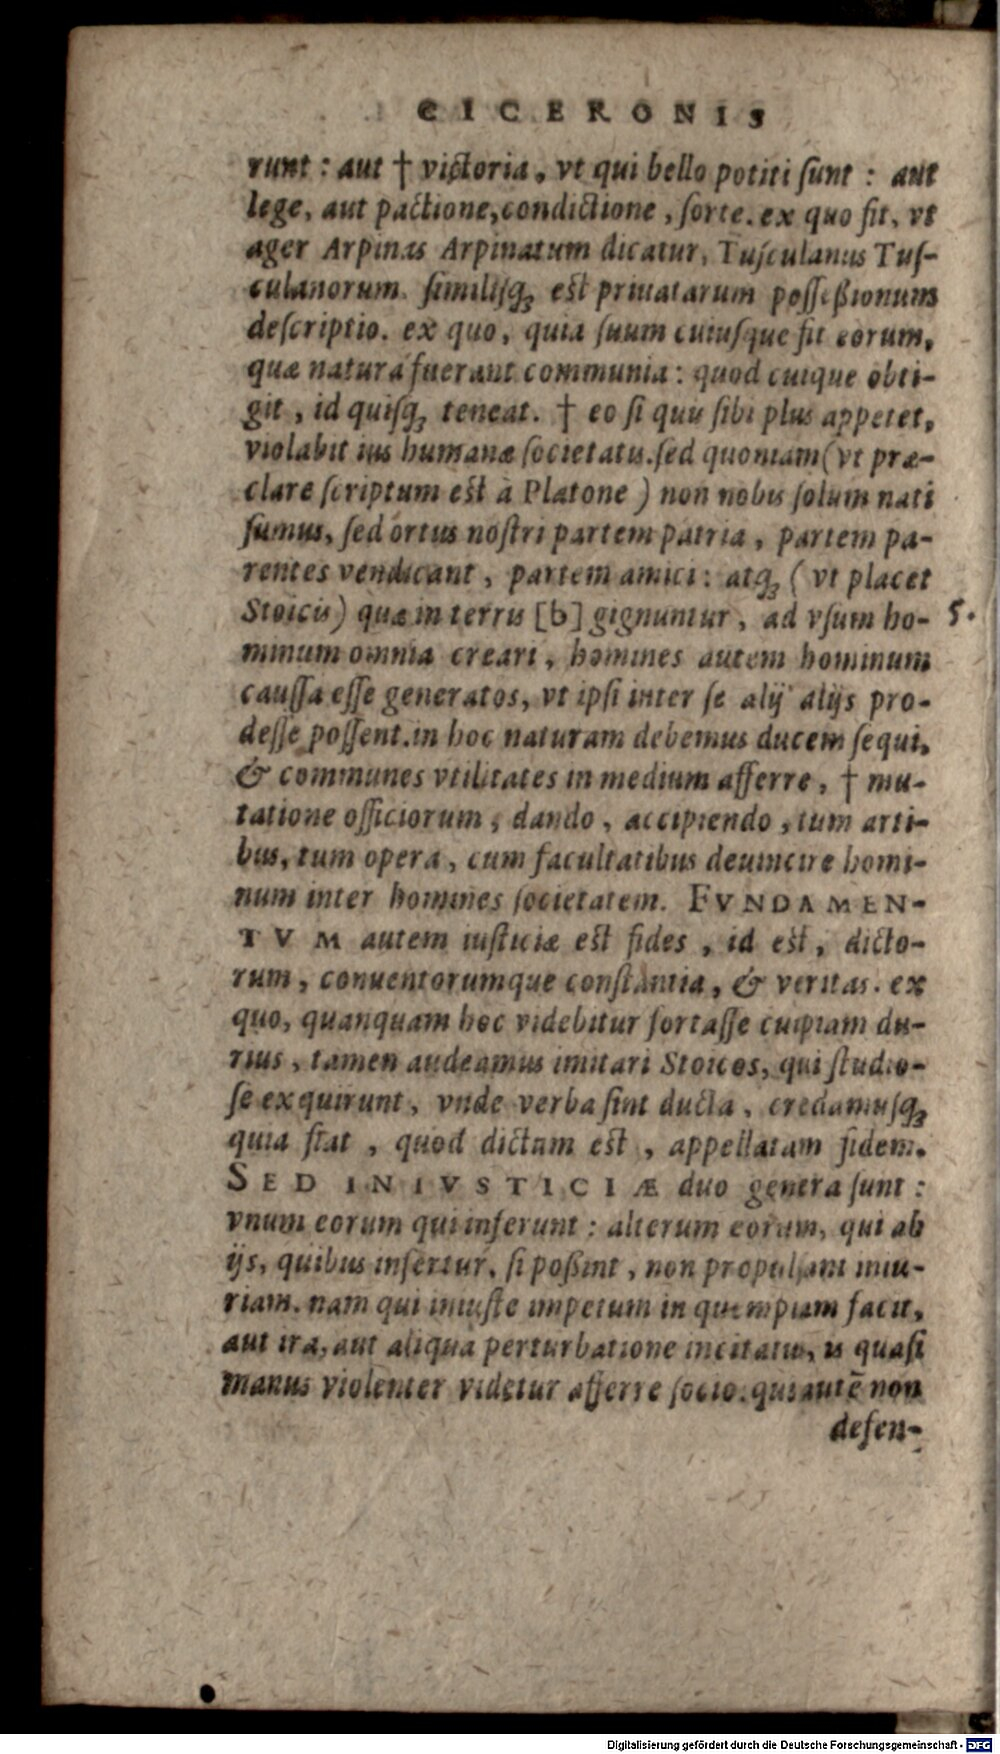 CICERONIS
runt : aut † victoria, vt qui bello potiti ſunt : aut
lege, aut pactione, condictione, ſorte. ex quo fit, vt
ager Arpinas Arpinatum dicatur, Tuſculanus Tuſ-
culanorum. ſimiliſq; eſt priuatarum poſſeßionum
deſcriptio. ex quo, quia ſuum cuiuſque fit eorum,
quæ natura fuerant communia : quod cuique obti-
git, id quiſq; teneat. † eo ſi quis ſibi plus appetet,
violabit ius humanæ ſocietatis. ſed quoniam (vt præ-
clare ſcriptum eſt à Platone) non nobis ſolum nati
ſumus, ſed ortus noſtri partem patria, partem pa-
rentes vendicant, partem amici : atq; (vt placet
Stoicis) quæ in terris [b] gignuntur, ad vſum ho- 5.
minum omnia creari, homines autem hominum
cauſſa eſſe generatos, vt ipſi inter ſe alij alijs pro-
deſſe poſſent. in hoc naturam debemus ducem ſequi,
& communes vtilitates in medium afferre, † mu-
tatione officiorum, dando, accipiendo, tum arti-
bus, tum opera, cum facultatibus deuincire homi-
num inter homines ſocietatem. FVNDAMEN-
TVM autem iuſticiæ eſt fides, id eſt, dicto-
rum, conuentorumque conſtantia, & veritas. ex
quo, quanquam hoc videbitur fortaſſe cuipiam du-
rius, tamen audeamus imitari Stoicos, qui ſtudio-
ſe exquirunt, vnde verba ſint ducta, credamuſq;
quia fiat, quod dictum eſt, appellatam fidem.
SED INIVSTICIÆ duo genera ſunt :
vnum eorum qui inferunt : alterum eorum, qui ab
ijs, quibus infertur, ſi poßint, non propulſant iniu-
riam. nam qui iniuſte impetum in quempiam facit,
aut ira, aut aliqua perturbatione incitatus, is quaſi
manus violenter videtur afferre ſocio. qui autē non
defen-
Digitalisierung gefördert durch die Deutsche Forschungsgemeinschaft - DFG